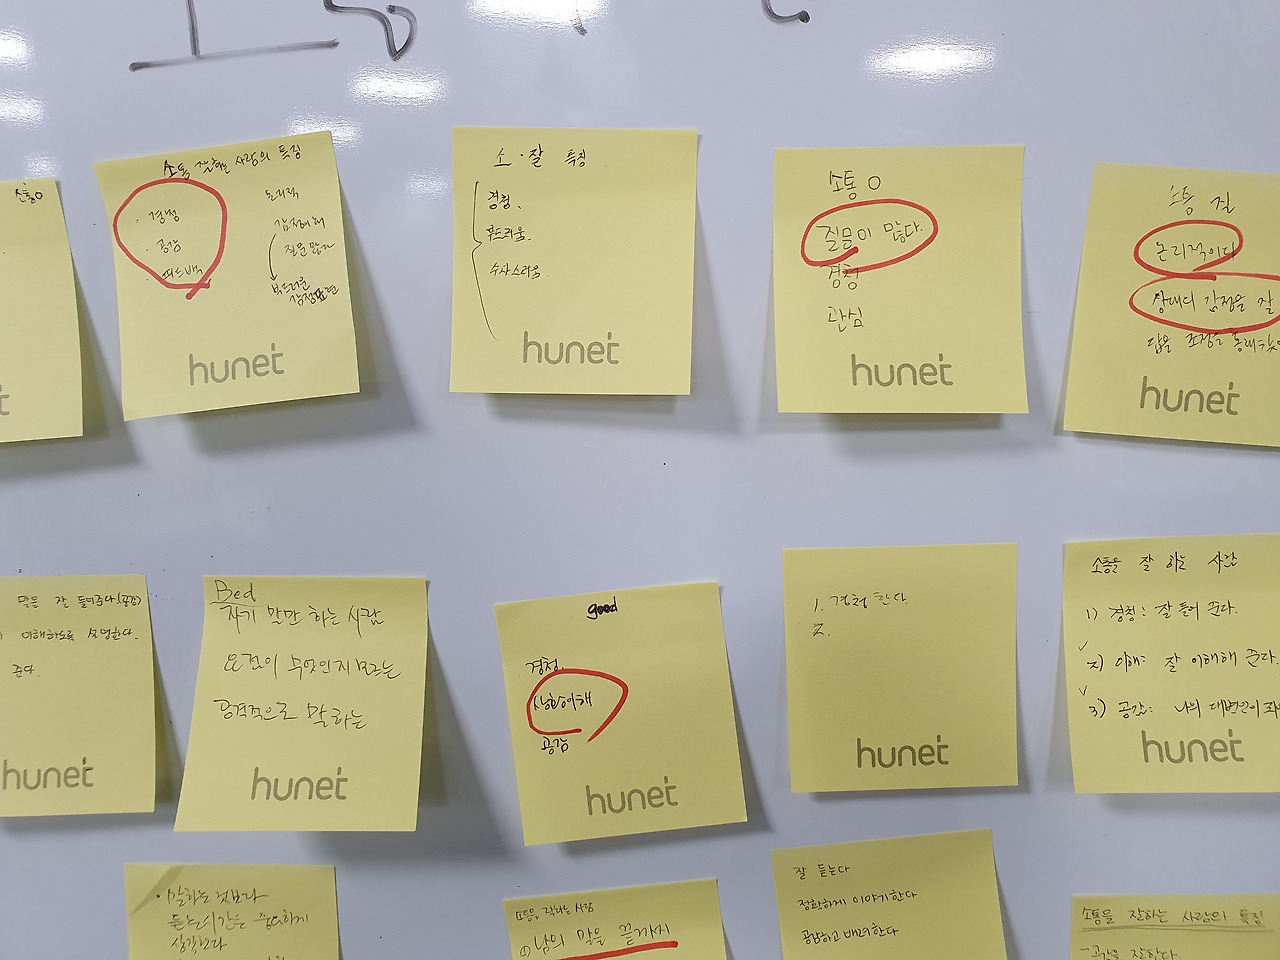 소통O
소통 잘하는 사람의 특징
· 경청
· 공감
· 피드백
논리적
감정이해
질문 많다
부드러운
감정표현
hunet
소·잘 특징
경청.
부드러움.
수사스러움.
hunet
소통 O
질문이 많다.
경청
관심
hunet
소통 잘
논리적이다
상대의 감정을 잘
답을
hunet
말을 잘 들어준다(공감)
이해하도록 설명한다.
준다.
hunet
Bed
자기 말만 하는 사람
요점이 무엇인지 모르는
공격적으로 말하는
hunet
good
경청.
상황이해
공감
hunet
1. 경청 한다.
2.
hunet
소통을 잘 하는 사람
1) 경청: 잘 들어 준다.
2) 이해: 잘 이해해 준다.
3) 공감: 나의 대변인이
hunet
· 말하는 것보다
듣는 시간을 중요하게
생각한다
소통을 잘하는 사람
① 남의 말을 끝까지
잘 듣는다
정확하게 이야기한다
공감하고 배려한다
소통을 잘하는 사람의 특징
- 공감을 잘한다.